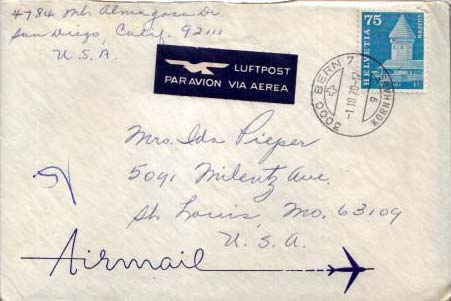 4784 Mt. Almagosa Dr
San Diego, Calif. 92111
U.S.A.
LUFTPOST
PAR AVION VIA AEREA
75
HELVETIA
LUZERN
3000 BERN 7
-1.10.70-17
KORNHAUS
Mrs. Ida Pieper
5091 Milentz Ave.
St. Louis, Mo. 63109
U.S.A.
Airmail